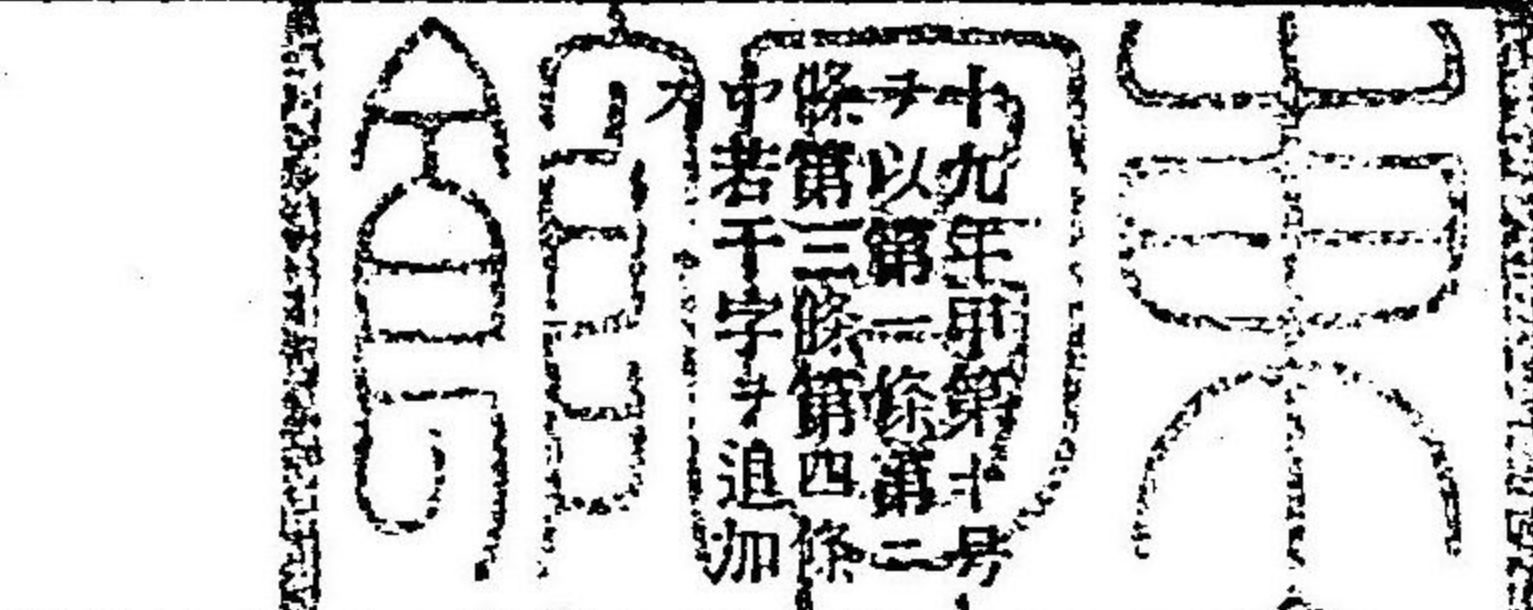 十九年甲第十号
ヲ以第一條第二
條第三條第四條
中若干字ヲ追加
ス